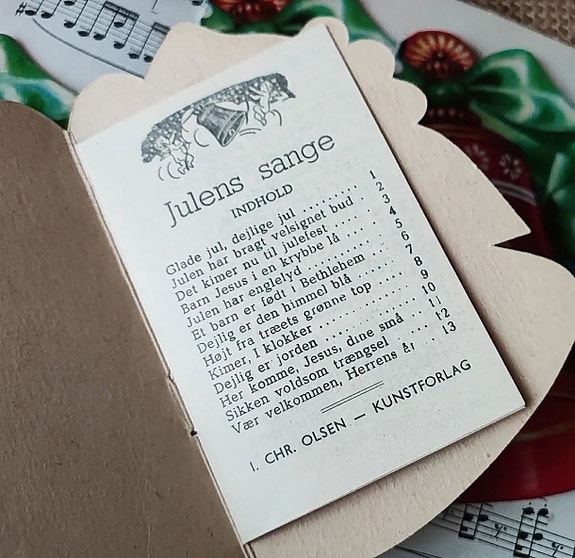 Julens sange
INDHOLD
Glade jul, dejlige jul ......... 1
Julen har bragt velsignet bud . 2
Det kimer nu til julefest ...... 3
Barn Jesus i en krybbe lå ..... 4
Julen har englelyd ............ 5
Et barn er født i Bethlehem ... 6
Dejlig er den himmel blå ...... 7
Højt fra træets grønne top .... 8
Kimer, I klokker .............. 9
Dejlig er jorden .............. 10
Her komme, Jesus, dine små .. 11
Sikken voldsom trængsel ..... 12
Vær velkommen, Herrens år .. 13
I. CHR. OLSEN — KUNSTFORLAG